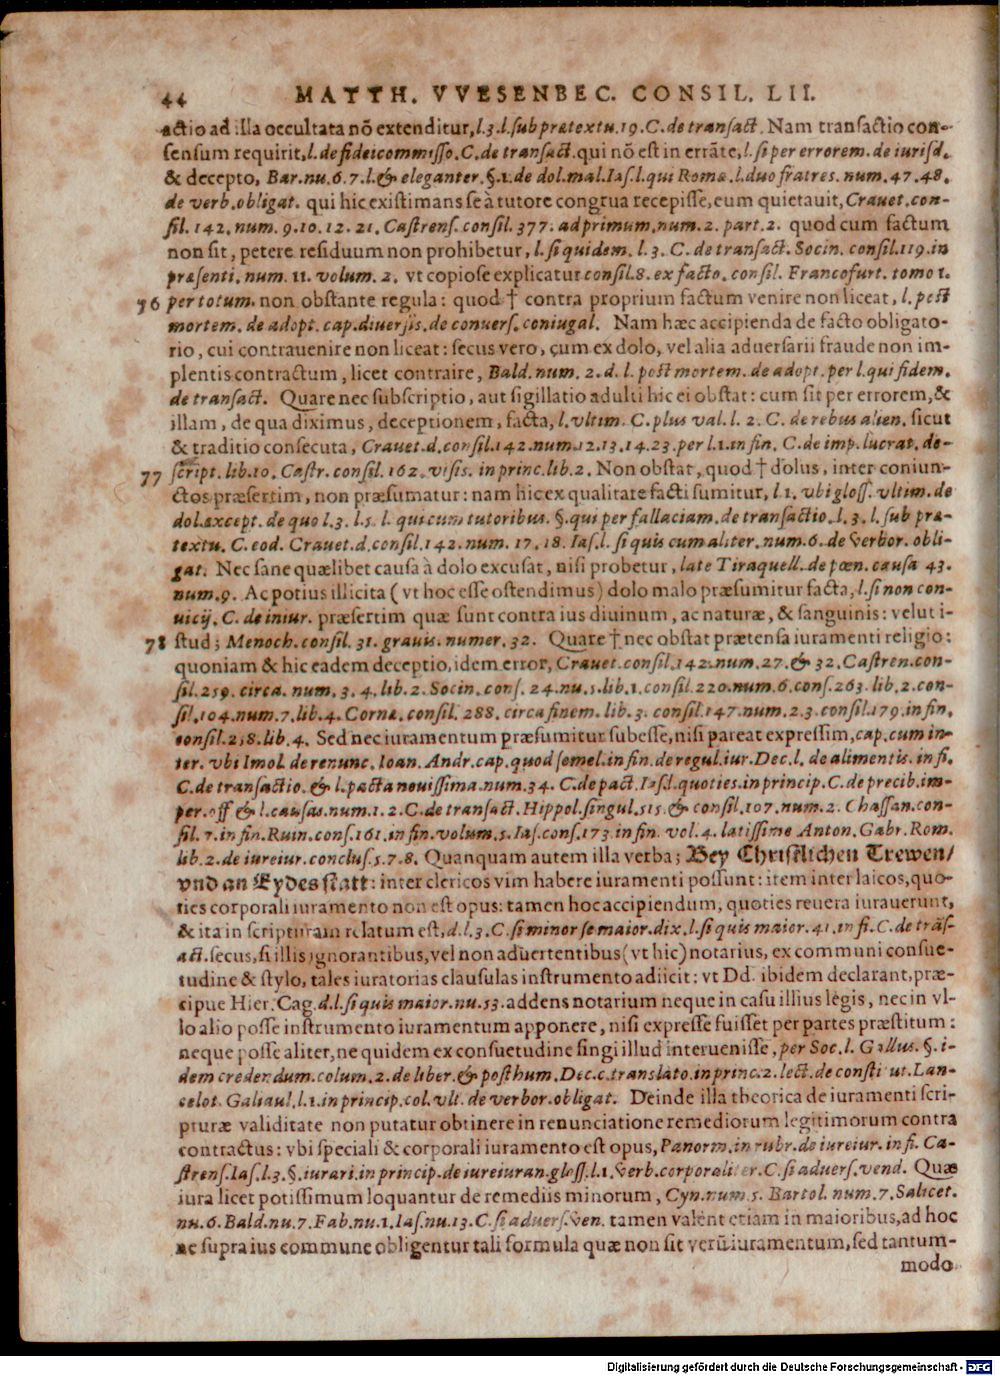 44 MATTH. VVESENBEC. CONSIL. LII.
actio ad illa occultata nõ extenditur, l.3.l.sub prætextu.19.C.de transact. Nam transactio con-
sensum requirit, l.de fideicommisso.C.de transact. qui nõ est in errãte, l.si per errorem.de iurisd.
& decepto, Bar.nu.6.7.l.& eleganter.§.1.de dol.mal.Ias.l.qui Romæ.l.duo fratres.num.47.48.
de verb.obligat. qui hic existimans se à tutore congrua recepisse, eum quietauit, Crauet.con-
sil.142.num.9.10.12.21. Castrens.consil.377.ad primum,num.2.part.2. quod cum factum
non sit, petere residuum non prohibetur, l.si quidem.l.3.C.de transact. Socin.consil.119.in
præsenti.num.11.volum.2. vt copiose explicatur consil.8.ex facto.consil.Francofurt.tomo 1.
76 per totum. non obstante regula: quod † contra proprium factum venire non liceat, l.post
mortem.de adopt.cap.diuersis.de conuers.coniugal. Nam hæc accipienda de facto obligato-
rio, cui contrauenire non liceat: secus vero, cum ex dolo, vel alia aduersarii fraude non im-
plentis contractum, licet contraire, Bald.num.2.d.l.post mortem.de adopt.per l.qui fidem.
de transact. Quare nec subscriptio, aut sigillatio adulti hic ei obstat: cum sit per errorem, &
illam, de qua diximus, deceptionem, facta, l.vltim.C.plus val.l.2.C.de rebus alien. sicut
& traditio consecuta, Crauet.d.consil.142.num.12.13.14.23.per l.1.in fin.C.de imp.lucrat.de-
77 script.lib.10.Castr.consil.162.visis.in princ.lib.2. Non obstat, quod † dolus, inter coniun-
ctos præsertim, non præsumatur: nam hic ex qualitate facti sumitur, l.1.vbi gloss.vltim.de
dol.except.de quo l.3.l.5.l.qui cum tutoribus.§.qui per fallaciam.de transactio.l.3.l.sub præ-
textu.C.eod.Crauet.d.consil.142.num.17.18.Ias.l.si quis cum aliter.num.6.de verbor.obli-
gat. Nec sane quælibet causa à dolo excusat, nisi probetur, late Tiraquell.de pœn.causa 43.
num.9. Ac potius illicita (vt hoc esse ostendimus) dolo malo præsumitur facta, l.si non con-
uicij.C.de iniur. præsertim quæ sunt contra ius diuinum, ac naturæ, & sanguinis: velut i-
78 stud; Menoch.consil.31.grauis.numer.32. Quare † nec obstat prætensa iuramenti religio:
quoniam & hic eadem deceptio, idem error, Crauet.consil.142.num.27.& 32.Castren.con-
sil.259.circa.num.3.4.lib.2.Socin.cons.24.nu.5.lib.1.consil.220.num.6.cons.263.lib.2.con-
sil.104.num.7.lib.4.Corne.consil.288.circa finem.lib.3.consil.147.num.2.3.consil.179.in fin.
consil.238.lib.4. Sed nec iuramentum præsumitur subesse, nisi pareat expressim, cap.cum in-
ter.vbi Imol.de renunc.Ioan.Andr.cap.quod semel.in fin.de regul.iur.Dec.l.de alimentis.in fi.
C.de transactio.& l.pacta nouissima.num.34.C.de pact.Ias.l.quoties.in princip.C.de precib.im-
per.off.& l.causas.num.1.2.C.de transact.Hippol.singul.515.& consil.107.num.2.Chassan.con-
sil.7.in fin.Ruin.cons.161.in fin.volum.5.Ias.cons.173.in fin.vol.4.latissime Anton.Gabr.Rom.
lib.2.de iureiur.conclus.5.7.8. Quanquam autem illa verba; Bey Christlichen Trewen/
vnd an Eydes statt: inter clericos vim habere iuramenti possunt: item inter laicos, quo-
ties corporali iuramento non est opus: tamen hoc accipiendum, quoties reuera iurauerunt,
& ita in scripturam relatum est, d.l.3.C.si minor se maior.dix.l.si quis maior.41.in fi.C.de trãs-
act. secus, si illis ignorantibus, vel non aduertentibus (vt hic) notarius, ex communi consue-
tudine & stylo, tales iuratorias clausulas instrumento adiicit: vt Dd. ibidem declarant, præ-
cipue Hier. Cag.d.l.si quis maior.nu.53. addens notarium neque in casu illius legis, nec in vl-
lo alio posse instrumento iuramentum apponere, nisi expresse fuisset per partes præstitum:
neque posse aliter, ne quidem ex consuetudine fingi illud interuenisse, per Soc.l.Gallus.§.i-
dem credendum.colum.2.de liber.& posthum.Dec.c.translato.in princ.2.lect.de constitut.Lan-
celot.Galiaul.l.1.in princip.col.vlt.de verbor.obligat. Deinde illa theorica de iuramenti scri-
pturæ validitate non putatur obtinere in renunciatione remediorum legitimorum contra
contractus: vbi speciali & corporali iuramento est opus, Panorm.in rubr.de iureiur.in fi.Ca-
strens.Ias.l.3.§.iurari.in princip.de iureiuran.gloss.l.1.verb.corporaliter.C.si aduers.vend. Quæ
iura licet potissimum loquantur de remediis minorum, Cyn.num.5.Bartol.num.7.Salicet.
nu.6.Bald.nu.7.Fab.nu.1.Ias.nu.13.C.si aduers.ven. tamen valent etiam in maioribus, ad hoc
ac supra ius commune obligentur tali formula quæ non sit verũ iuramentum, sed tantum-
modo
Digitalisierung gefördert durch die Deutsche Forschungsgemeinschaft - DFG